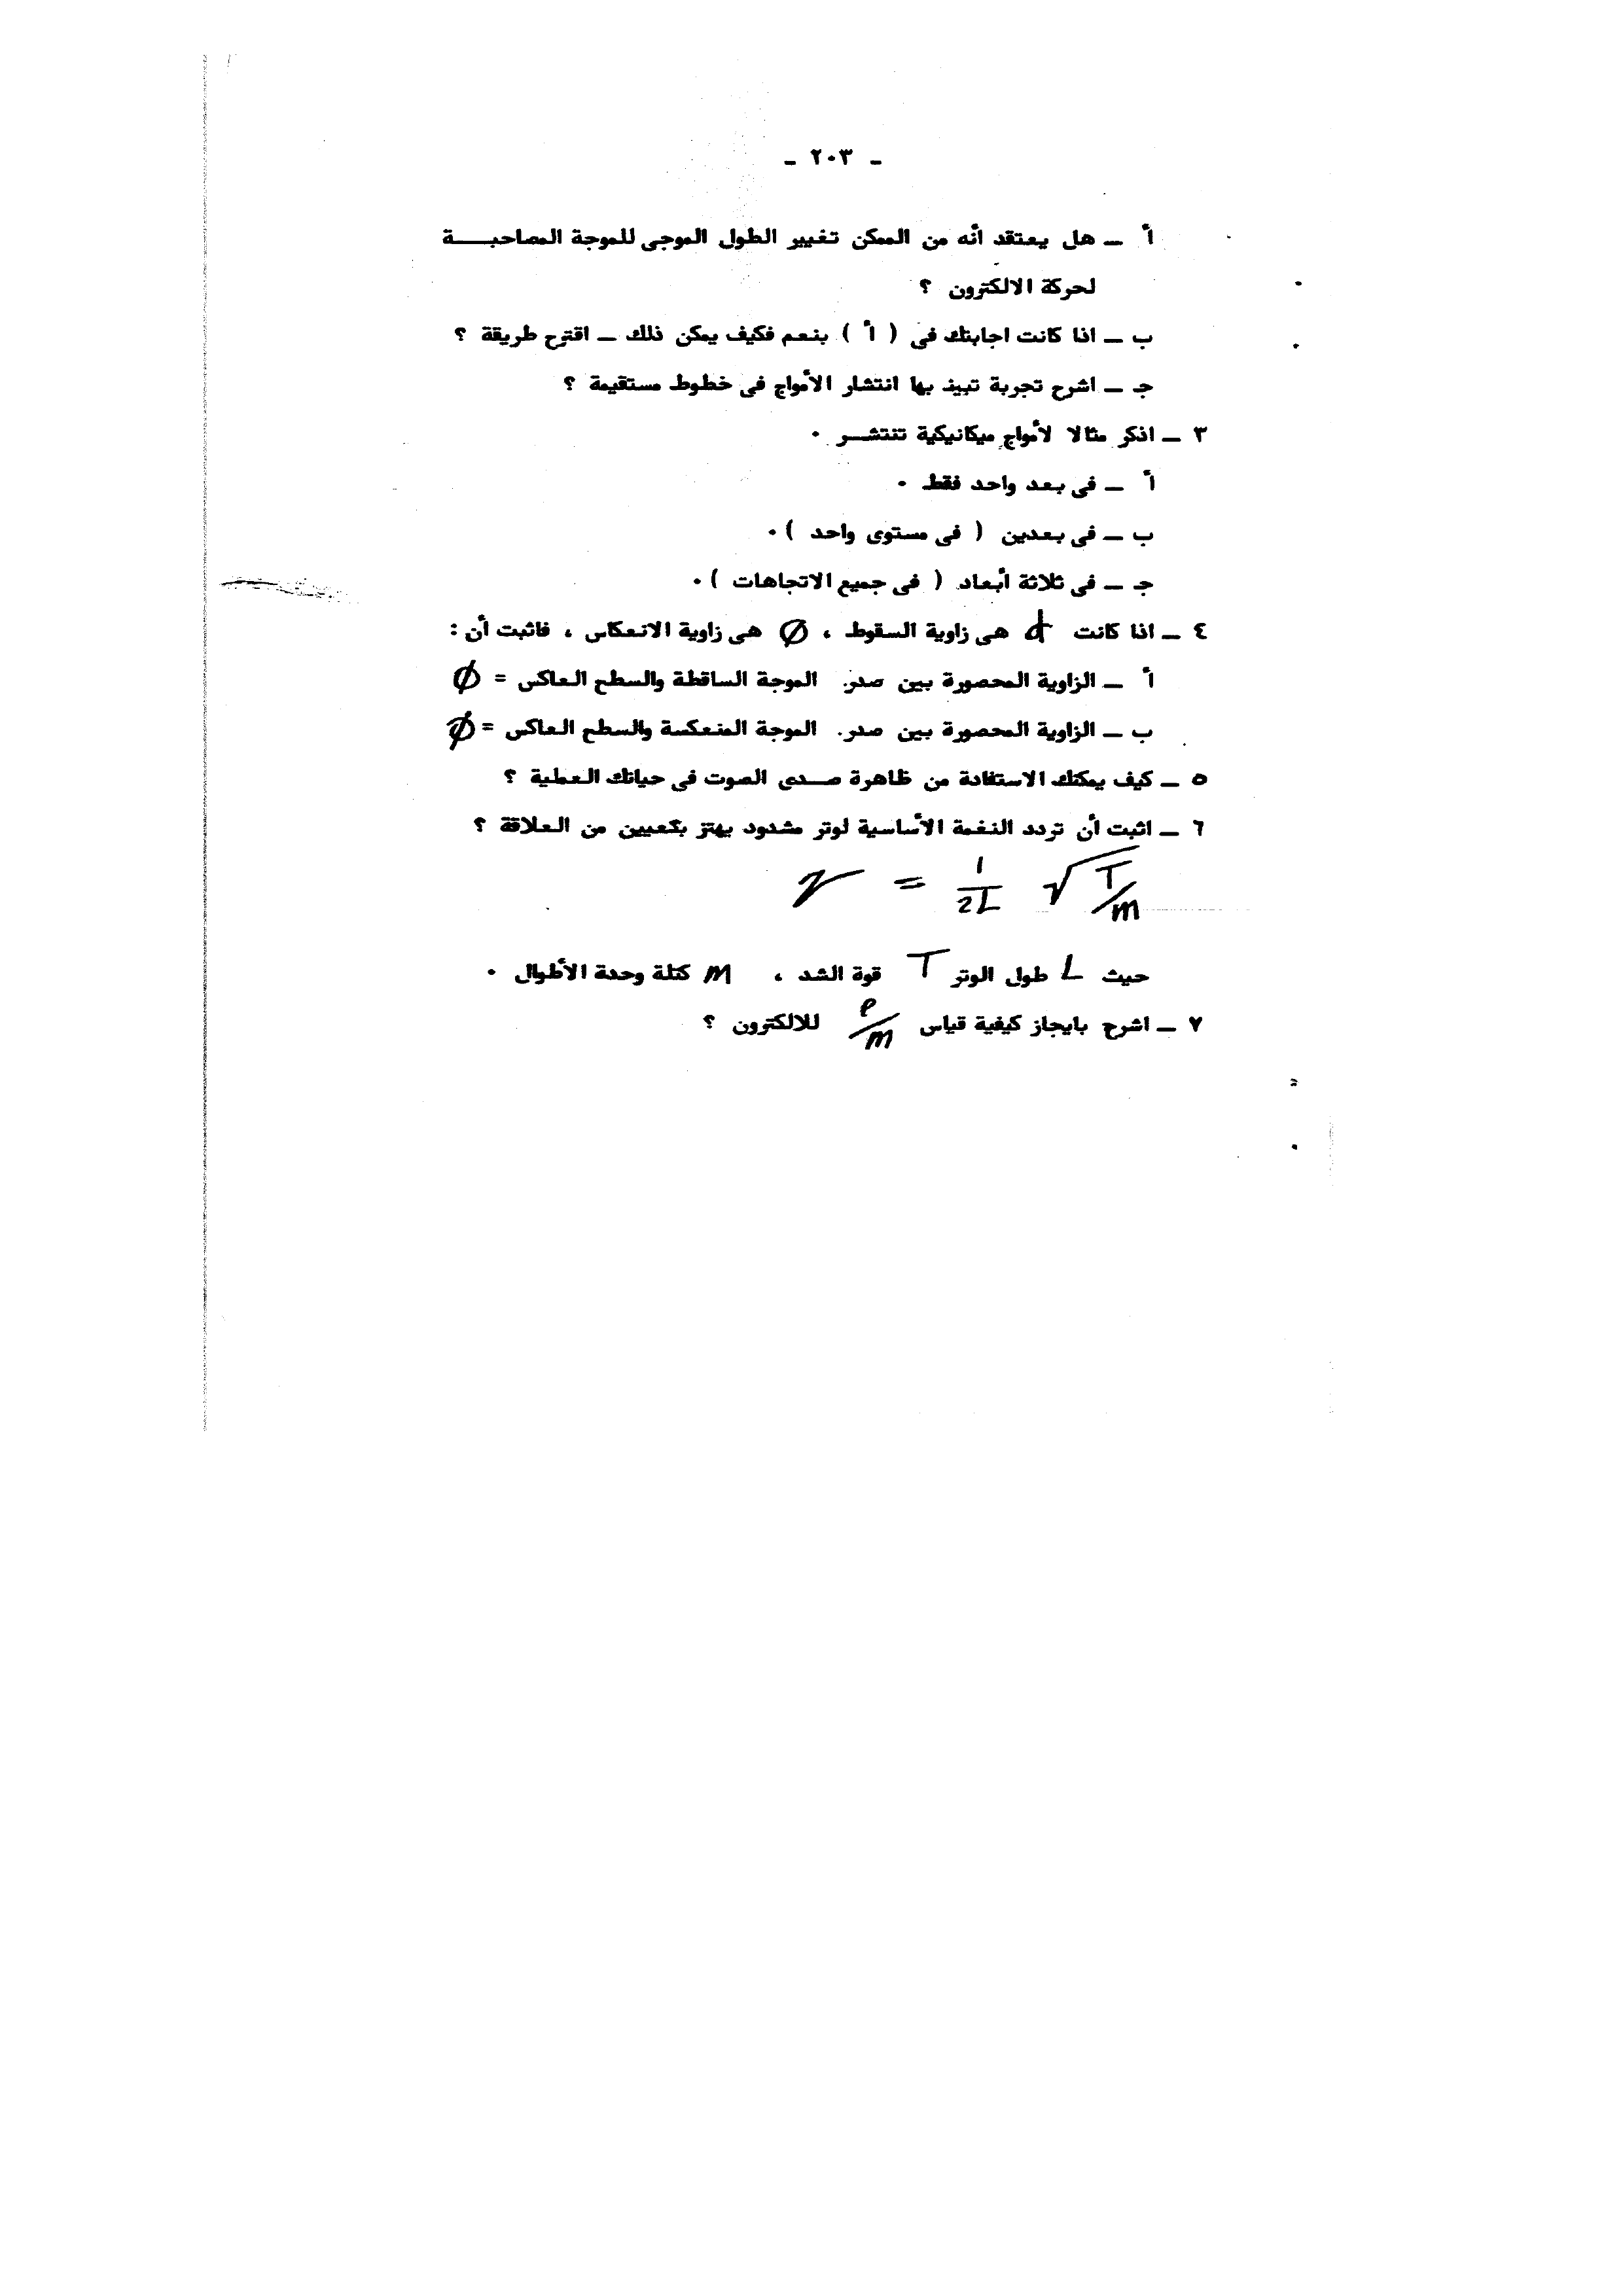 - ٢٠٣ -
أ - هل يعتقد أنه من الممكن تغيير الطول الموجى للموجة المصاحبة
لحركة الالكترون ؟
ب - اذا كانت اجابتك فى ( أ ) بنعم فكيف يمكن ذلك - اقترح طريقة ؟
جـ - اشرح تجربة تبين بها انتشار الأمواج فى خطوط مستقيمة ؟
٣ - اذكر مثالا لأمواج ميكانيكية تنتشر .
أ - فى بعد واحد فقط .
ب - فى بعدين ( فى مستوى واحد ) .
جـ - فى ثلاثة أبعاد ( فى جميع الاتجاهات ) .
٤ - اذا كانت هى زاوية السقوط ، Ø هى زاوية الانعكاس ، فاثبت أن :
أ - الزاوية المحصورة بين صدر الموجة الساقطة والسطح العاكس = ϕ
ب - الزاوية المحصورة بين صدر الموجة المنعكسة والسطح العاكس = ϕ
٥ - كيف يمكنك الاستفادة من ظاهرة صدى الصوت فى حياتك العملية ؟
٦ - اثبت أن تردد النغمة الأساسية لوتر مشدود يهتز بكعبين من العلاقة ؟
ν = 1/2L √T/m
حيث L طول الوتر T قوة الشد ، m كتلة وحدة الأطوال .
٧ - اشرح بايجاز كيفية قياس e/m للالكترون ؟